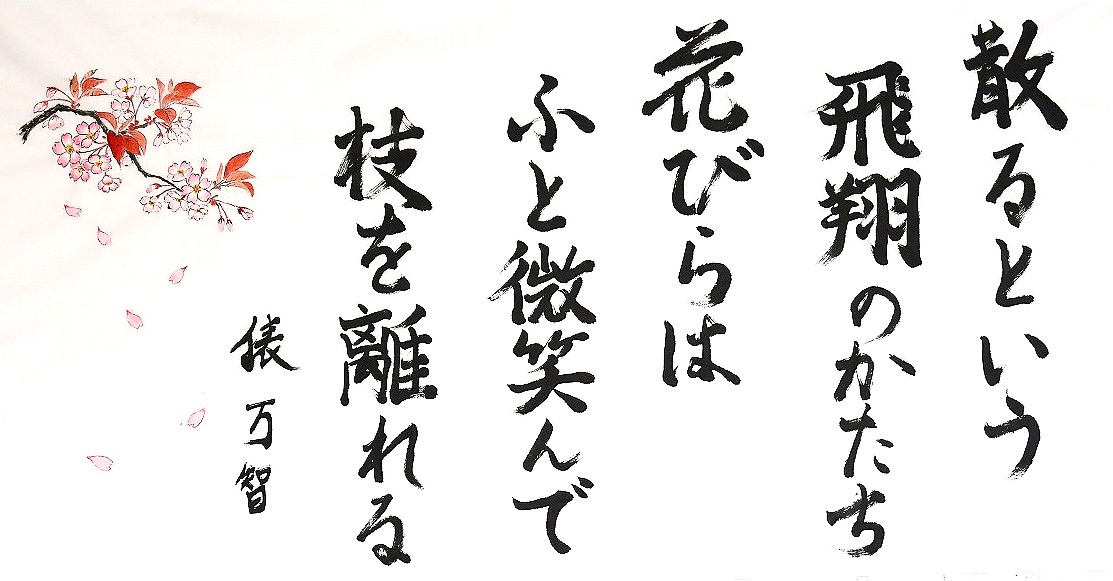 散るという
飛翔のかたち
花びらは
ふと微笑んで
枝を離れる
俵万智